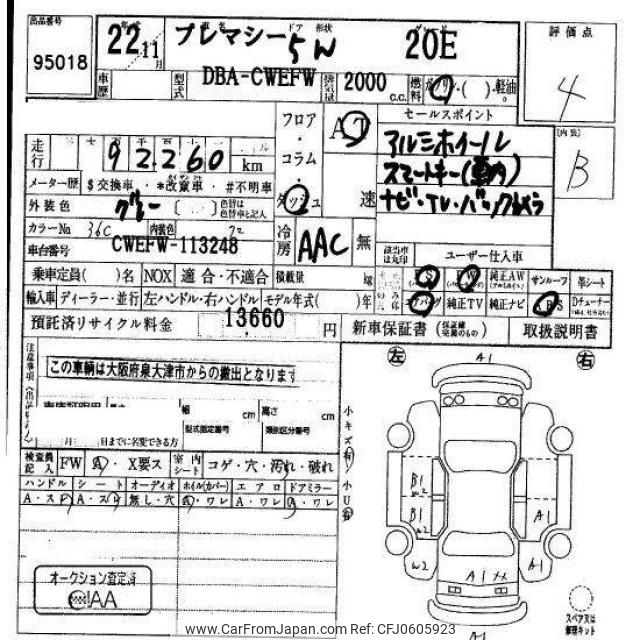 出品番号
95018
年式
22年11月
車名 ドア 形状
プレマシー 5W
グレード
20E
評価点
4
車歴
型式
DBA-CWEFW
排気量
2000 c.c.
燃料
ガソリン・( )・軽油
走行
十 万 千 百 十
92260 km
フロア・コラム・ダッシュ
AT 速
セールスポイント
アルミホイール
スマートキー(車内)
ナビ・TV・バックカメラ
[内装]
B
メーター歴 $ 交換車・*改竄車・#不明車
外装色 グレー 〔 〕 色替は色替車と記入
カラーNo 36C 内装色
車台番号 CWEFW-113248
冷房 AAC 無
該当車は丸印
ユーザー仕入車
PS PW 純正AW サンルーフ 革シート
エアバッグ 純正TV 純正ナビ ABS
乗車定員( )名 NOX 適合・不適合 積載量 kg
輸入車 ディーラー・並行 左ハンドル・右ハンドル モデル年式( )年
預託済リサイクル料金 13660 円
新車保証書 取扱説明書
注意事項
この車輌は大阪府泉大津市からの搬出となります
幅 cm 高さ cm
型式指定番号 類別区分番号
月 日までに名変できる方
小キズ有 / 小U有
検査員記入 FW A・X要ス 室内シート コゲ・穴・汚れ・破れ
ハンドル シート オーディオ ホイル(カバー) エアロ ドアミラー
A・スレ A・スレ 無し・穴 A・ワレ A・ワレ A・ワレ
オークション査定済
AA
左 右
A1
B1
W2
B1
W2
A1
W2
A1
A1
A1
スペアタイヤ
修理キット
www.CarFromJapan.com Ref: CFJ0605923